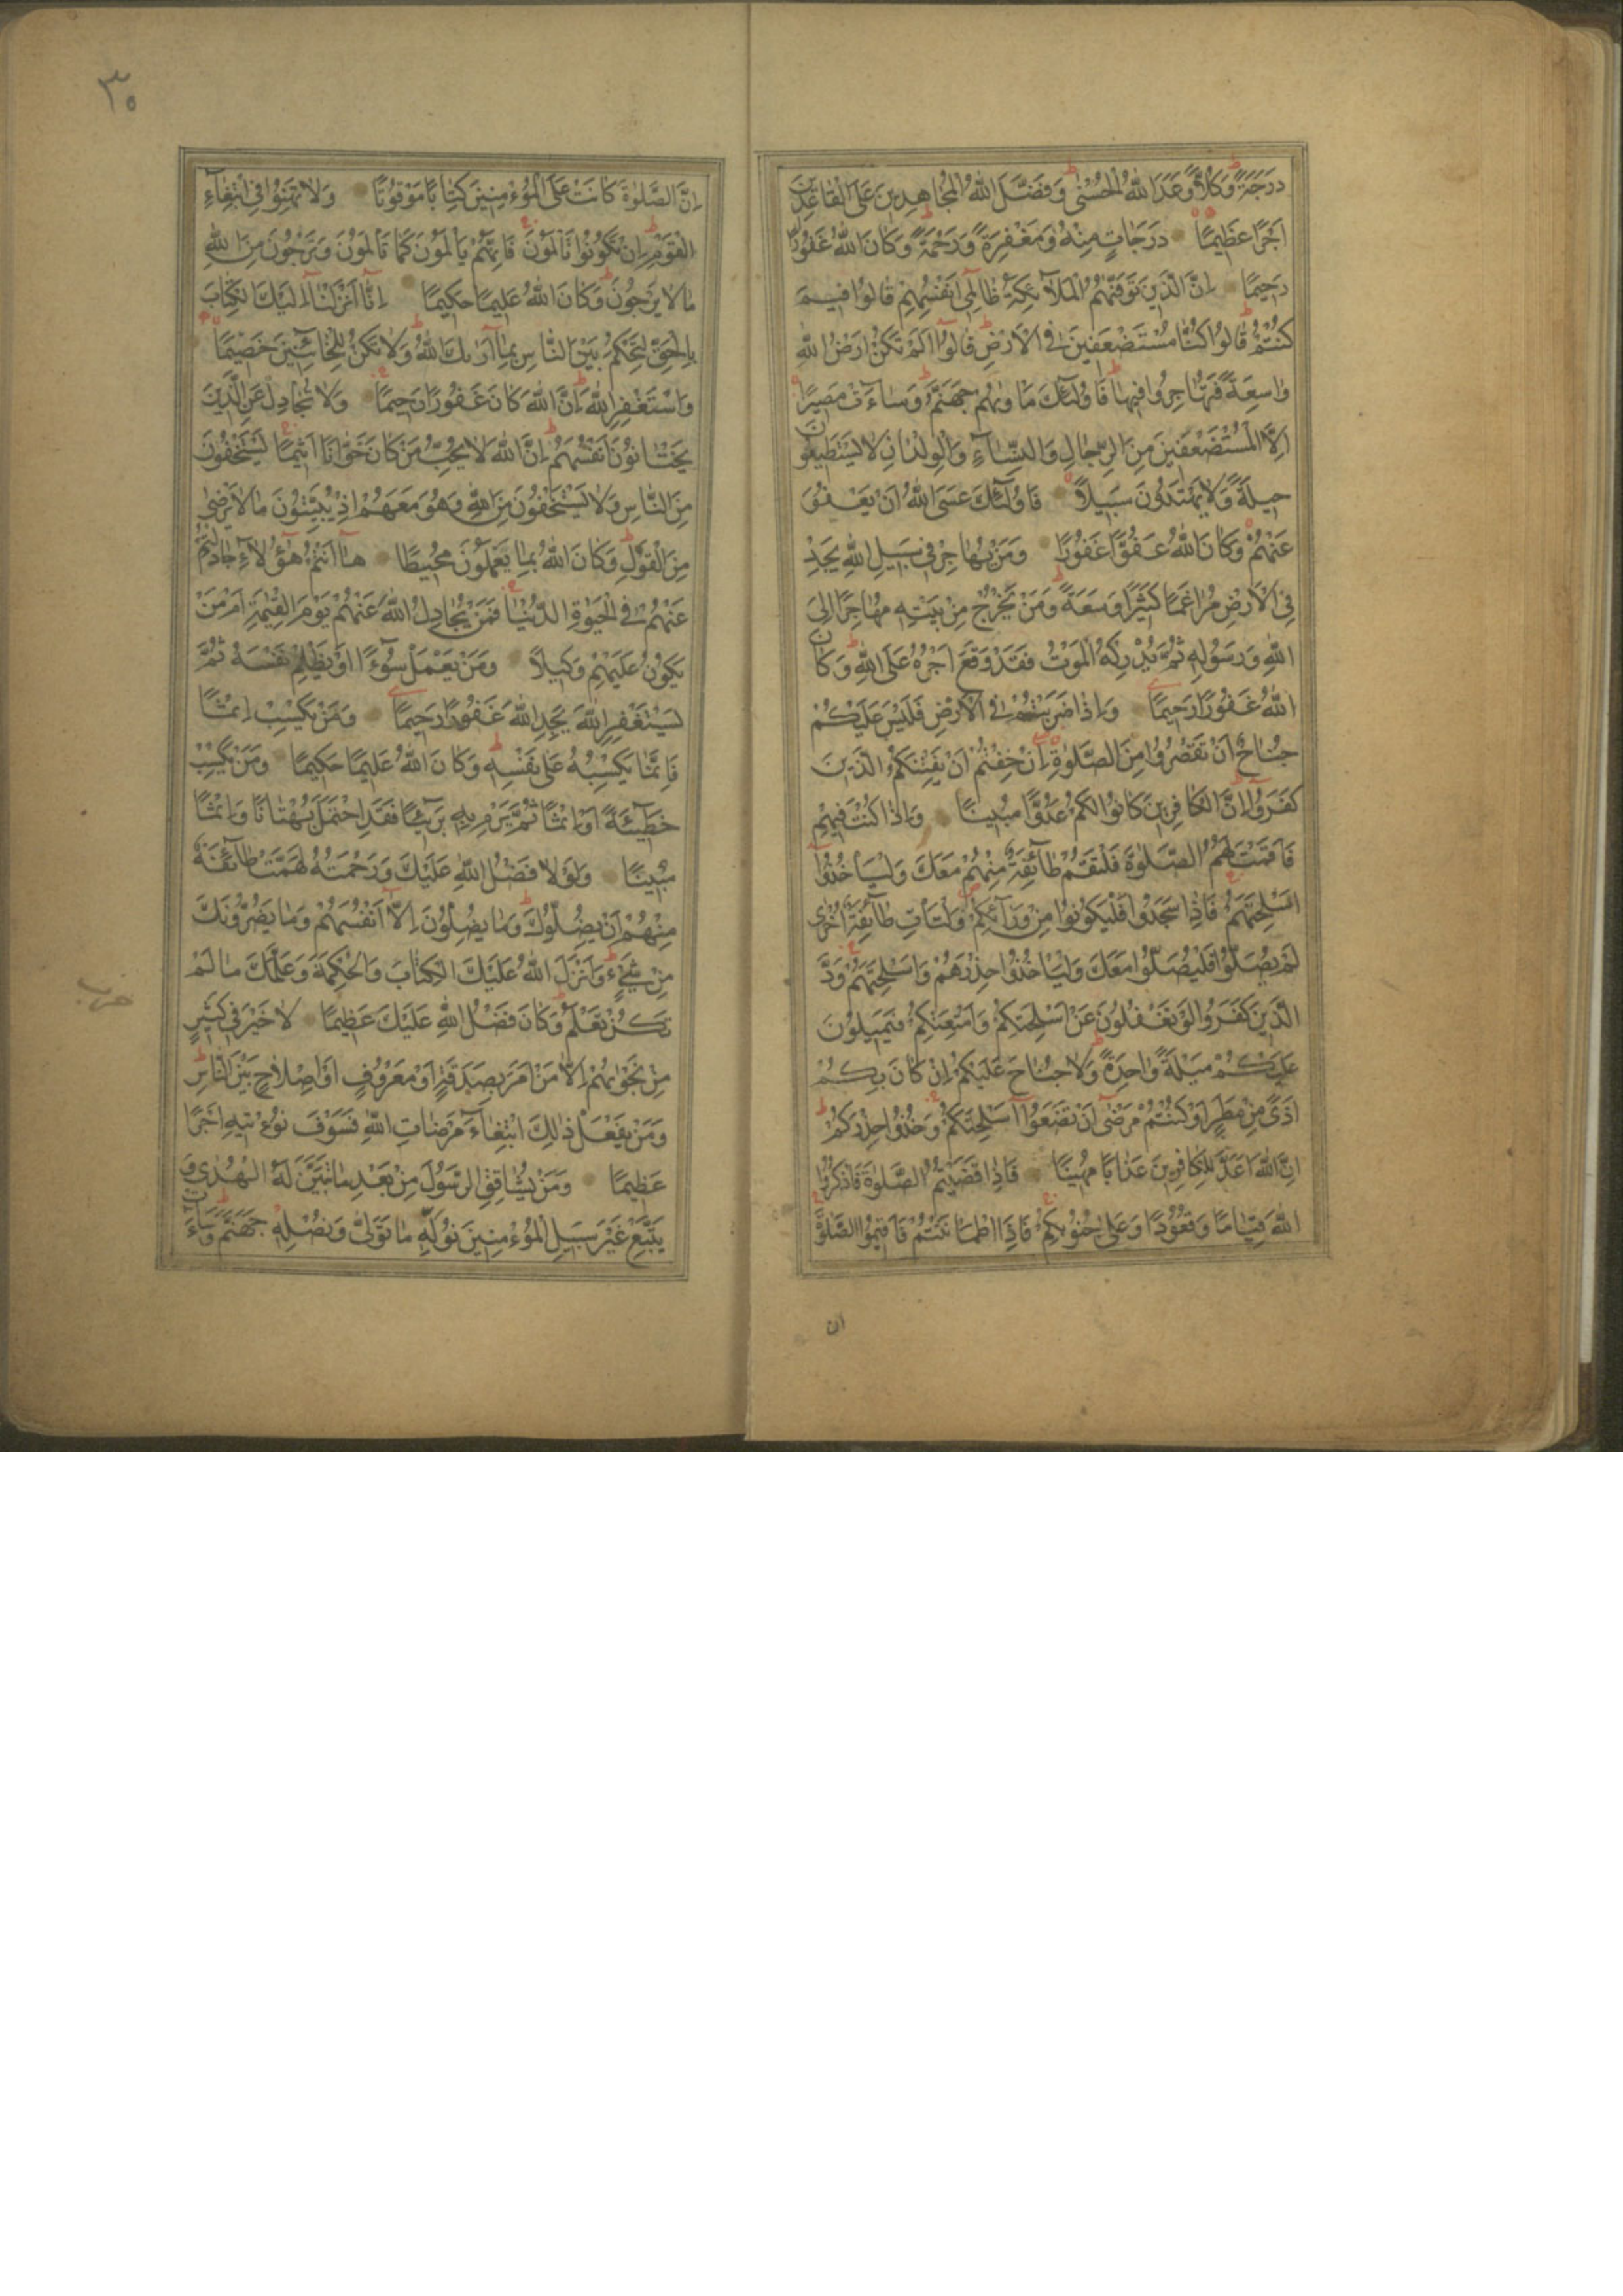 دَرَجَةً وَكُلًّا وَعَدَ اللّٰهُ الْحُسْنٰى وَفَضَّلَ اللّٰهُ الْمُجَاهِدِينَ عَلَى الْقَاعِدِينَ
اَجْرًا عَظِيمًا دَرَجَاتٍ مِنْهُ وَمَغْفِرَةً وَرَحْمَةً وَكَانَ اللّٰهُ غَفُورًا
رَحِيمًا اِنَّ الَّذِينَ تَوَفّٰيهُمُ الْمَلَآئِكَةُ ظَالِمِى اَنْفُسِهِمْ قَالُوا فِيمَ
كُنْتُمْ قَالُوا كُنَّا مُسْتَضْعَفِينَ فِى الْاَرْضِ قَالُوا اَلَمْ تَكُنْ اَرْضُ اللّٰهِ
وَاسِعَةً فَتُهَاجِرُوا فِيهَا فَاُولٰٓئِكَ مَاْوٰيهُمْ جَهَنَّمُ وَسَآءَتْ مَصِيرًا
اِلَّا الْمُسْتَضْعَفِينَ مِنَ الرِّجَالِ وَالنِّسَآءِ وَالْوِلْدَانِ لَا يَسْتَطِيعُونَ
حِيلَةً وَلَا يَهْتَدُونَ سَبِيلًا فَاُولٰٓئِكَ عَسَى اللّٰهُ اَنْ يَعْفُوَ
عَنْهُمْ وَكَانَ اللّٰهُ عَفُوًّا غَفُورًا وَمَنْ يُهَاجِرْ فِى سَبِيلِ اللّٰهِ يَجِدْ
فِى الْاَرْضِ مُرَاغَمًا كَثِيرًا وَسَعَةً وَمَنْ يَخْرُجْ مِنْ بَيْتِهِ مُهَاجِرًا اِلَى
اللّٰهِ وَرَسُولِهِ ثُمَّ يُدْرِكْهُ الْمَوْتُ فَقَدْ وَقَعَ اَجْرُهُ عَلَى اللّٰهِ وَكَانَ
اللّٰهُ غَفُورًا رَحِيمًا وَاِذَا ضَرَبْتُمْ فِى الْاَرْضِ فَلَيْسَ عَلَيْكُمْ
جُنَاحٌ اَنْ تَقْصُرُوا مِنَ الصَّلٰوةِ اِنْ خِفْتُمْ اَنْ يَفْتِنَكُمُ الَّذِينَ
كَفَرُوا اِنَّ الْكَافِرِينَ كَانُوا لَكُمْ عَدُوًّا مُبِينًا وَاِذَا كُنْتَ فِيهِمْ
فَاَقَمْتَ لَهُمُ الصَّلٰوةَ فَلْتَقُمْ طَآئِفَةٌ مِنْهُمْ مَعَكَ وَلْيَاْخُذُوا
اَسْلِحَتَهُمْ فَاِذَا سَجَدُوا فَلْيَكُونُوا مِنْ وَرَآئِكُمْ وَلْتَاْتِ طَآئِفَةٌ اُخْرٰى
لَمْ يُصَلُّوا فَلْيُصَلُّوا مَعَكَ وَلْيَاْخُذُوا حِذْرَهُمْ وَاَسْلِحَتَهُمْ وَدَّ
الَّذِينَ كَفَرُوا لَوْ تَغْفُلُونَ عَنْ اَسْلِحَتِكُمْ وَاَمْتِعَتِكُمْ فَيَمِيلُونَ
عَلَيْكُمْ مَيْلَةً وَاحِدَةً وَلَا جُنَاحَ عَلَيْكُمْ اِنْ كَانَ بِكُمْ
اَذًى مِنْ مَطَرٍ اَوْ كُنْتُمْ مَرْضٰى اَنْ تَضَعُوا اَسْلِحَتَكُمْ وَخُذُوا حِذْرَكُمْ
اِنَّ اللّٰهَ اَعَدَّ لِلْكَافِرِينَ عَذَابًا مُهِينًا فَاِذَا قَضَيْتُمُ الصَّلٰوةَ فَاذْكُرُوا
اللّٰهَ قِيَامًا وَقُعُودًا وَعَلٰى جُنُوبِكُمْ فَاِذَا اطْمَاْنَنْتُمْ فَاَقِيمُوا الصَّلٰوةَ
ان
٣٥
اِنَّ الصَّلٰوةَ كَانَتْ عَلَى الْمُؤْمِنِينَ كِتَابًا مَوْقُوتًا وَلَا تَهِنُوا فِى ابْتِغَآءِ
الْقَوْمِ اِنْ تَكُونُوا تَاْلَمُونَ فَاِنَّهُمْ يَاْلَمُونَ كَمَا تَاْلَمُونَ وَتَرْجُونَ مِنَ اللّٰهِ
مَا لَا يَرْجُونَ وَكَانَ اللّٰهُ عَلِيمًا حَكِيمًا اِنَّآ اَنْزَلْنَآ اِلَيْكَ الْكِتَابَ
بِالْحَقِّ لِتَحْكُمَ بَيْنَ النَّاسِ بِمَآ اَرٰيكَ اللّٰهُ وَلَا تَكُنْ لِلْخَآئِنِينَ خَصِيمًا
وَاسْتَغْفِرِ اللّٰهَ اِنَّ اللّٰهَ كَانَ غَفُورًا رَحِيمًا وَلَا تُجَادِلْ عَنِ الَّذِينَ
يَخْتَانُونَ اَنْفُسَهُمْ اِنَّ اللّٰهَ لَا يُحِبُّ مَنْ كَانَ خَوَّانًا اَثِيمًا يَسْتَخْفُونَ
مِنَ النَّاسِ وَلَا يَسْتَخْفُونَ مِنَ اللّٰهِ وَهُوَ مَعَهُمْ اِذْ يُبَيِّتُونَ مَا لَا يَرْضٰى
مِنَ الْقَوْلِ وَكَانَ اللّٰهُ بِمَا يَعْمَلُونَ مُحِيطًا هَآ اَنْتُمْ هٰٓؤُلَآءِ جَادَلْتُمْ
عَنْهُمْ فِى الْحَيٰوةِ الدُّنْيَا فَمَنْ يُجَادِلُ اللّٰهَ عَنْهُمْ يَوْمَ الْقِيٰمَةِ اَمْ مَنْ
يَكُونُ عَلَيْهِمْ وَكِيلًا وَمَنْ يَعْمَلْ سُوٓءًا اَوْ يَظْلِمْ نَفْسَهُ ثُمَّ
يَسْتَغْفِرِ اللّٰهَ يَجِدِ اللّٰهَ غَفُورًا رَحِيمًا وَمَنْ يَكْسِبْ اِثْمًا
فَاِنَّمَا يَكْسِبُهُ عَلٰى نَفْسِهِ وَكَانَ اللّٰهُ عَلِيمًا حَكِيمًا وَمَنْ يَكْسِبْ
خَطِيٓئَةً اَوْ اِثْمًا ثُمَّ يَرْمِ بِهِ بَرِيٓئًا فَقَدِ احْتَمَلَ بُهْتَانًا وَاِثْمًا
مُبِينًا وَلَوْلَا فَضْلُ اللّٰهِ عَلَيْكَ وَرَحْمَتُهُ لَهَمَّتْ طَآئِفَةٌ
مِنْهُمْ اَنْ يُضِلُّوكَ وَمَا يُضِلُّونَ اِلَّآ اَنْفُسَهُمْ وَمَا يَضُرُّونَكَ
مِنْ شَيْءٍ وَاَنْزَلَ اللّٰهُ عَلَيْكَ الْكِتَابَ وَالْحِكْمَةَ وَعَلَّمَكَ مَا لَمْ
تَكُنْ تَعْلَمُ وَكَانَ فَضْلُ اللّٰهِ عَلَيْكَ عَظِيمًا لَا خَيْرَ فِى كَثِيرٍ
مِنْ نَجْوٰيهُمْ اِلَّا مَنْ اَمَرَ بِصَدَقَةٍ اَوْ مَعْرُوفٍ اَوْ اِصْلَاحٍ بَيْنَ النَّاسِ
وَمَنْ يَفْعَلْ ذٰلِكَ ابْتِغَآءَ مَرْضَاتِ اللّٰهِ فَسَوْفَ نُؤْتِيهِ اَجْرًا
عَظِيمًا وَمَنْ يُشَاقِقِ الرَّسُولَ مِنْ بَعْدِ مَا تَبَيَّنَ لَهُ الْهُدٰى وَ
يَتَّبِعْ غَيْرَ سَبِيلِ الْمُؤْمِنِينَ نُوَلِّهِ مَا تَوَلّٰى وَنُصْلِهِ جَهَنَّمَ وَسَآءَتْ
حزب